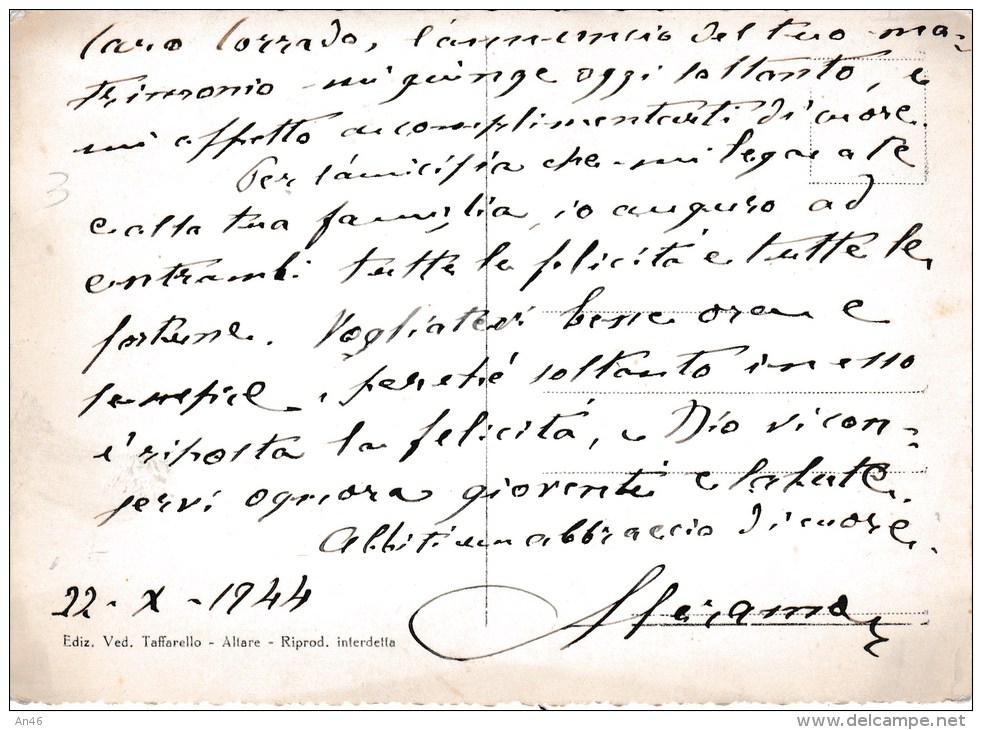 Caro Corrado, l'annuncio del tuo ma-
trimonio mi giunge oggi soltanto, e
mi affretto a complimentarti di cuore.
Per l'amicizia che mi lega a te
e alla tua famiglia, io auguro ad
entrambi tutte le felicità e tutte le
fortune. Vogliatevi bene ora e
sempre, perché soltanto in esso
è riposta la felicità, e Dio vi con-
servi ognora gioventù e salute.
Abbiti un abbraccio di cuore.
22-X-1944
Ediz. Ved. Taffarello - Altare - Riprod. interdetta
3
An46
www.delcampe.net